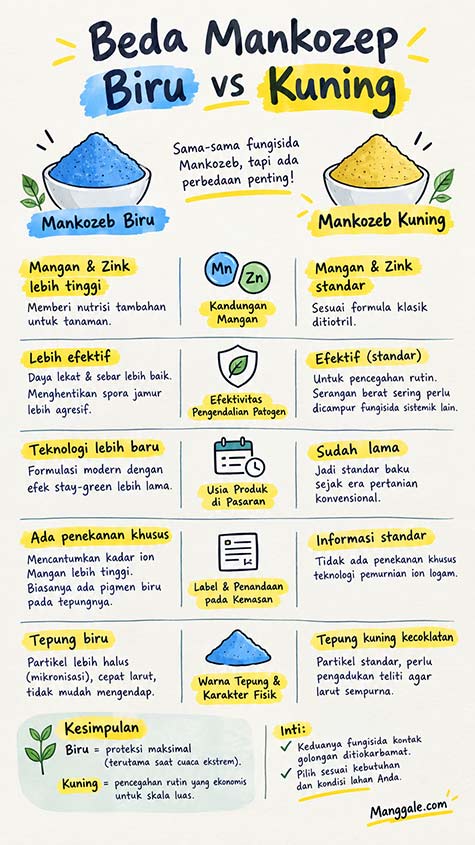 Beda Mankozep
Biru vs Kuning
Sama-sama fungisida
Mankozeb, tapi ada
perbedaan penting!
Mankozeb Biru
Mankozeb Kuning
Mangan & Zink
lebih tinggi
Memberi nutrisi tambahan
untuk tanaman.
Mn
Zn
Kandungan
Mangan
Mangan & Zink
standar
Sesuai formula klasik
ditiotril.
Lebih efektif
Daya lekat & sebar lebih baik.
Menghentikan spora jamur
lebih agresif.
Efektivitas
Pengendalian Patogen
Efektif (standar)
Untuk pencegahan rutin.
Serangan berat sering perlu
dicampur fungisida sistemik lain.
Teknologi lebih baru
Formulasi modern dengan
efek stay-green lebih lama.
Usia Produk
di Pasaran
Sudah lama
Jadi standar baku
sejak era pertanian
konvensional.
Ada penekanan khusus
Mencantumkan kadar ion
Mangan lebih tinggi.
Biasanya ada pigmen biru
pada tepungnya.
Label & Penandaan
pada Kemasan
Informasi standar
Tidak ada penekanan khusus
teknologi pemurnian ion logam.
Tepung biru
Partikel lebih halus
(mikronisasi), cepat larut,
tidak mudah mengendap.
Warna Tepung &
Karakter Fisik
Tepung kuning kecoklatan
Partikel standar, perlu
pengadukan teliti agar
larut sempurna.
Kesimpulan
Biru = proteksi maksimal
(terutama saat cuaca ekstrem).
Kuning = pencegahan rutin yang ekonomis
untuk skala luas.
Inti:
✓ Keduanya fungisida kontak
golongan ditiokarbamat.
✓ Pilih sesuai kebutuhan
dan kondisi lahan Anda.
Manggale.com